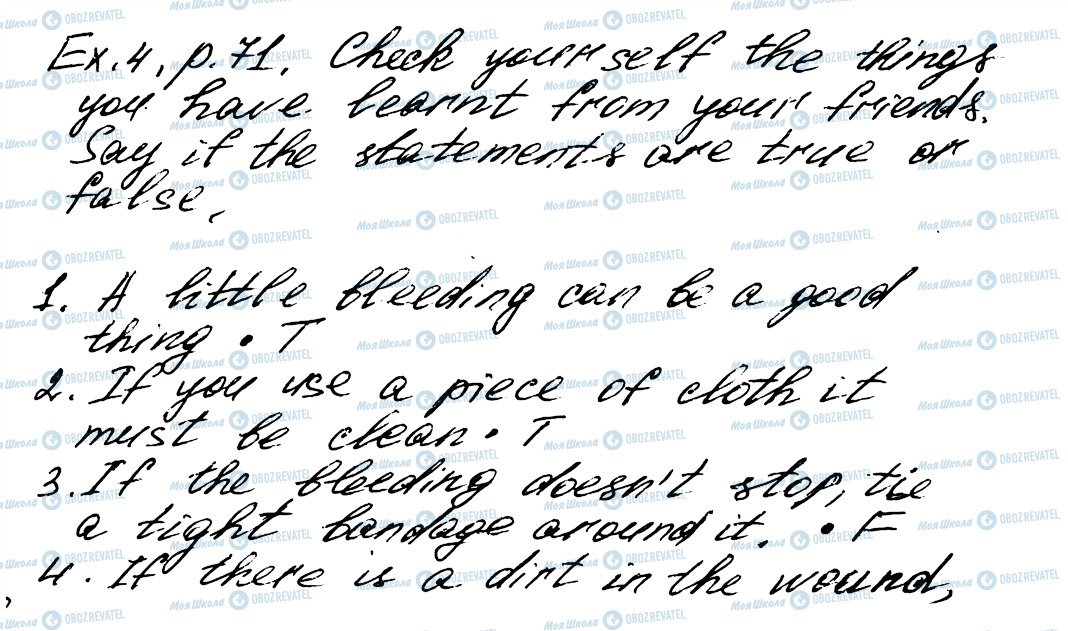 Ex.4, p.71. Check yourself the things
you have learnt from your friends.
Say if the statements are true or
false.
1. A little bleeding can be a good
thing • T
2. If you use a piece of cloth it
must be clean • T
3. If the bleeding doesn't stop, tie
a tight bandage around it. • F
4. If there is a dirt in the wound,